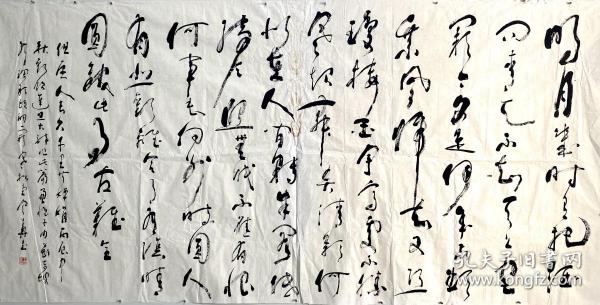 明月幾時有把酒
問青天不知天上宮
闕今夕是何年我欲
乘風歸去又恐
瓊樓玉宇高處不勝
寒起舞弄清影何
似在人間轉朱閣低
綺戶照無眠不應有恨
何事長向別時圓人
有悲歡離合月有陰晴
圓缺此事古難全
但願人長久千里共嬋娟丙辰中
秋歡飲達旦大醉作此篇兼懷子由
孔夫子旧书网